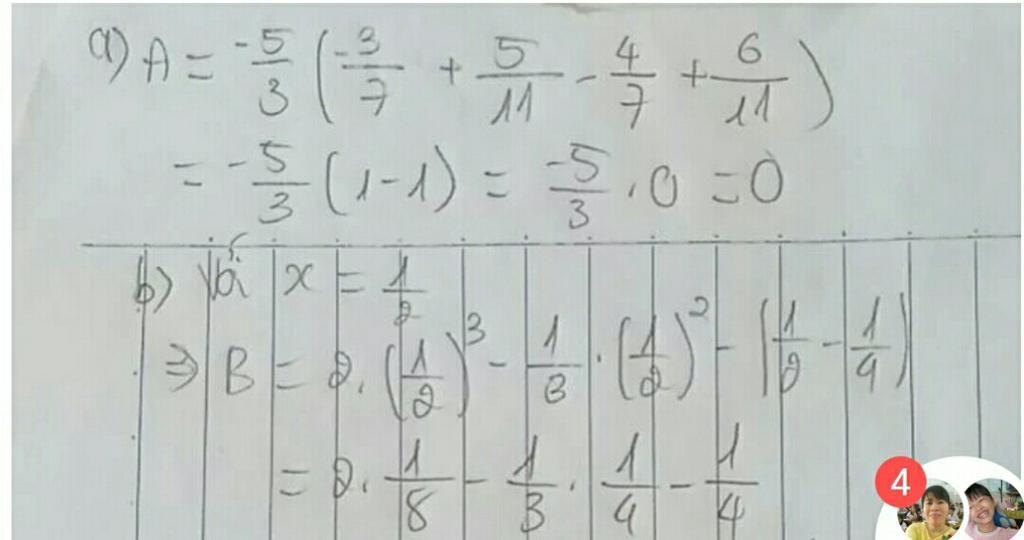 a) A = -5/3 (-3/7 + 5/11 - 4/7 + 6/11)
= -5/3 (1-1) = -5/3 . 0 = 0
b) Với x = 1/2
⇒ B = 2. (1/2)^3 - 1/3 . (1/2)^2 - |1/2 - 1/4|
= 2. 1/8 - 1/3 . 1/4 - 1/4
4